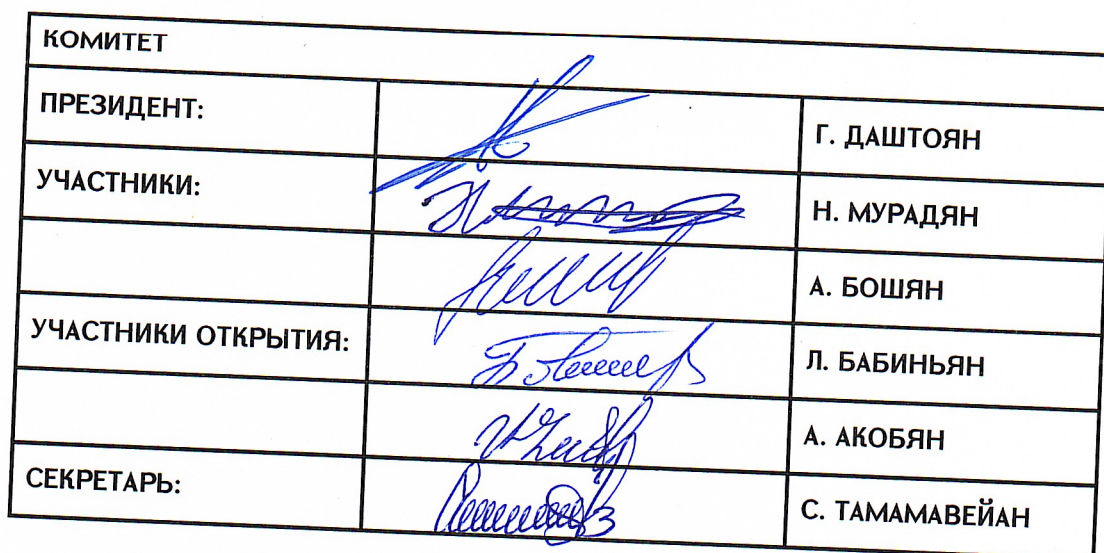 КОМИТЕТ
ПРЕЗИДЕНТ: Г. ДАШТОЯН
УЧАСТНИКИ: Н. МУРАДЯН
А. БОШЯН
УЧАСТНИКИ ОТКРЫТИЯ: Л. БАБИНЬЯН
А. АКОБЯН
СЕКРЕТАРЬ: С. ТАМАМАВЕЙАН